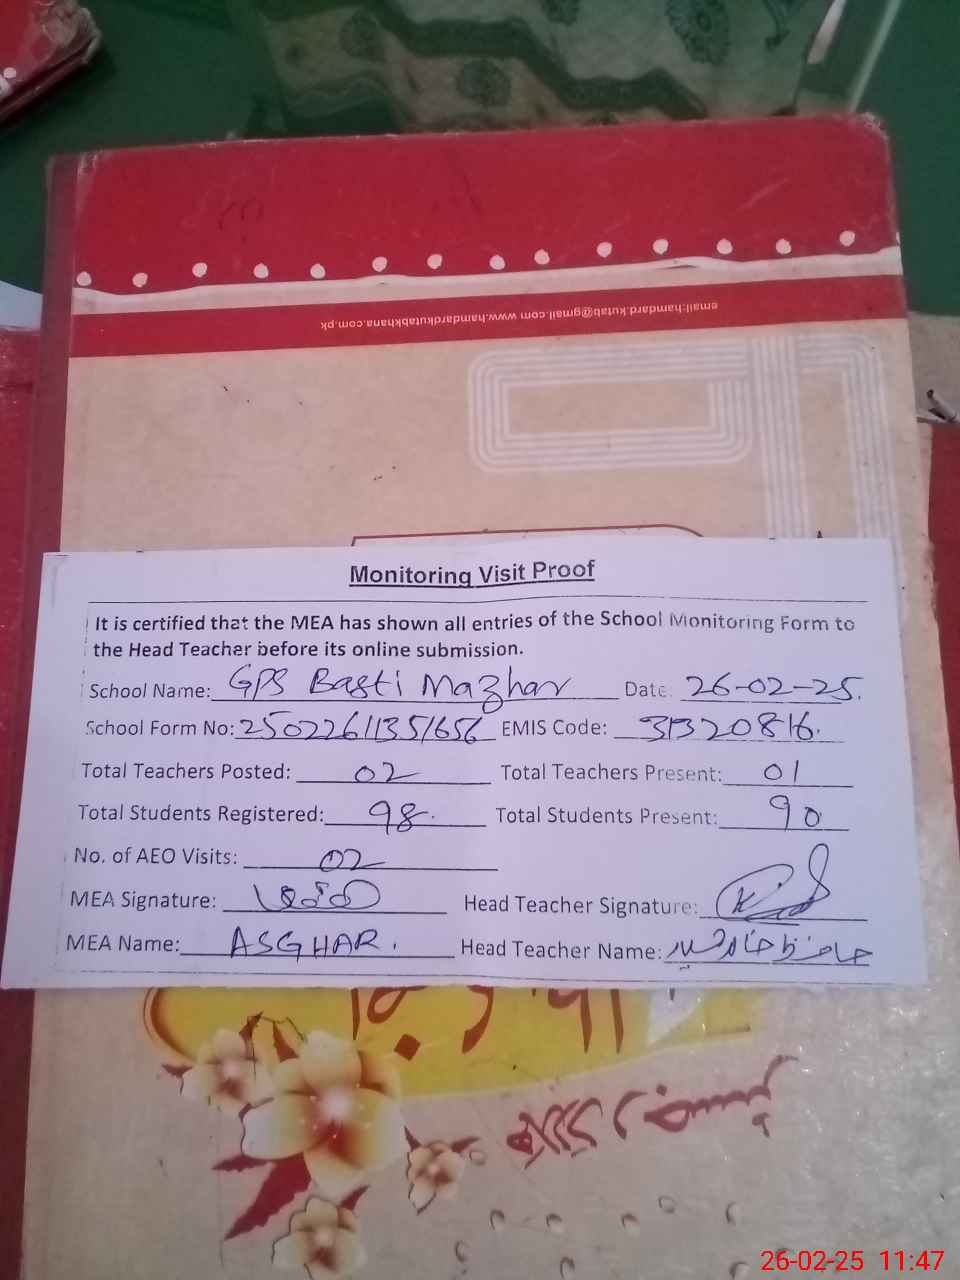 email:hamdard.kutab@gmail.com www.hamdardkutabkhana.com.pk
Monitoring Visit Proof
It is certified that the MEA has shown all entries of the School Monitoring Form to
the Head Teacher before its online submission.
School Name: GPS Basti Mazhar Date: 26-02-25.
School Form No: 25022611351656 EMIS Code: 31320816.
Total Teachers Posted: 02 Total Teachers Present: 01
Total Students Registered: 98. Total Students Present: 90
No. of AEO Visits: 02
MEA Signature: Head Teacher Signature:
MEA Name: ASGHAR. Head Teacher Name: حافظ
26-02-25 11:47